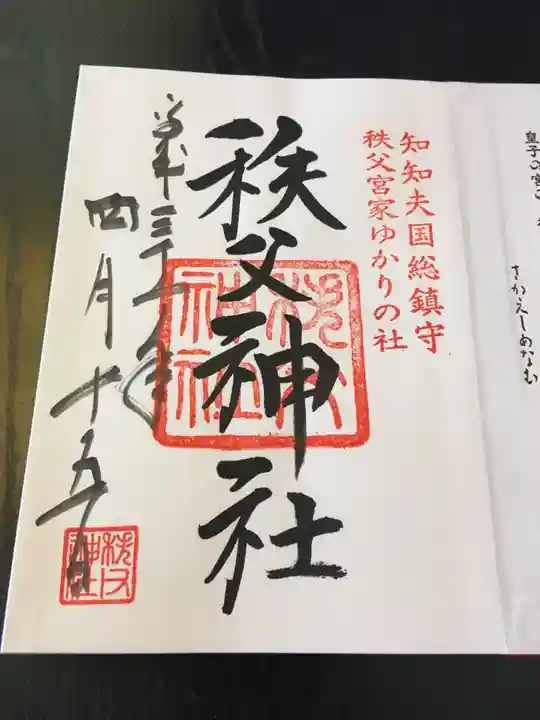 皇子の宮
さかえしめなむ
知知夫国総鎮守
秩父宮家ゆかりの社
秩父神社
秩父神社
平成三十一年
四月十五日
秩父神社